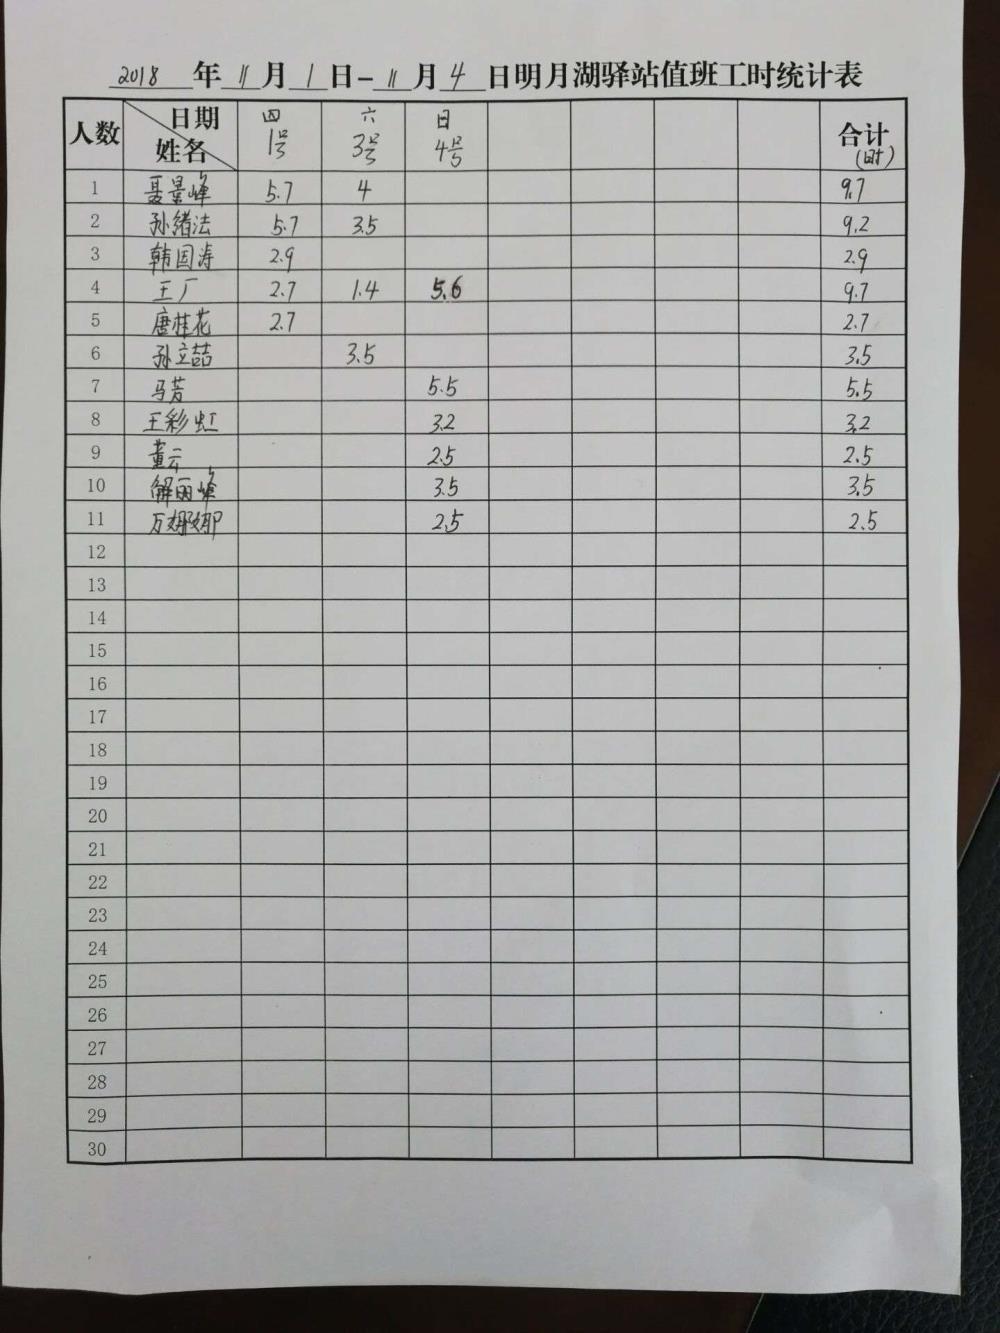 2018 年 11 月 1 日-11 月 4 日明月湖驿站值班工时统计表
人数 日期 姓名 四 1号 六 3号 日 4号 合计 (时)
1 聂景峰 5.7 4 9.7
2 孙绪法 5.7 3.5 9.2
3 韩国涛 2.9 2.9
4 王厂 2.7 1.4 5.6 9.7
5 唐桂花 2.7 2.7
6 孙立喆 3.5 3.5
7 马芳 5.5 5.5
8 王彩虹 3.2 3.2
9 董云 2.5 2.5
10 解丽峰 3.5 3.5
11 万娜娜 2.5 2.5
12
13
14
15
16
17
18
19
20
21
22
23
24
25
26
27
28
29
30